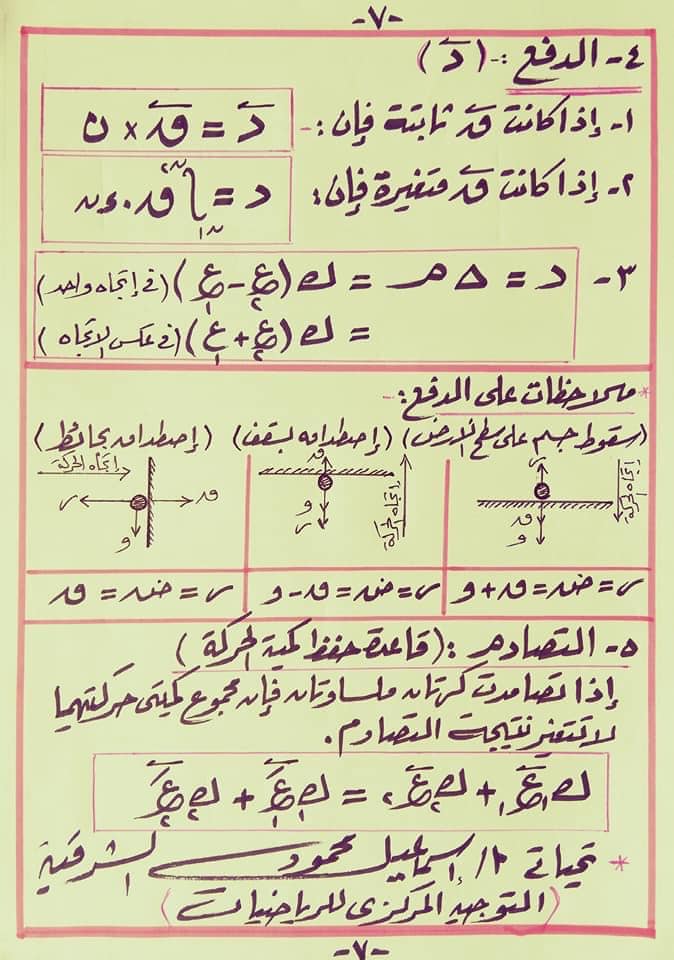 -٧-
٤- الدفع :- (د)
١- إذا كانت ق ثابتة فإن :- د = ق × ن
٢- إذا كانت ق متغيرة فإن : د = ∫ ق . ءن
٣- د = Δ م = ك (ع٢ - ع١) (في إتجاه واحد)
= ك (ع٢ + ع١) (في عكس الاتجاه)
* ملاحظات على الدفع :-
(سقوط جسم على سطح الأرض) (إصطدامه بسقف) (إصطدامه بحائط)
إتجاه الحركة ر ق و
إتجاه الحركة ق و ر
إتجاه الحركة ر ق و
ر = ضـ = ق + و ر = ضـ = ق - و ر = ضـ = ق
٥- التصادم : (قاعدة حفظ كمية الحركة)
إذا تصادمت كرتان ملساوتان فإن مجموع كميتى حركتهما
لا تتغير نتيجة التصادم .
ك١ ع١ + ك٢ ع٢ = ك١ ع١َ + ك٢ ع٢َ
* تحياتى أ/ إسماعيل محمود الشرقية
(التوجيه المركزى للرياضيات)
-٧-